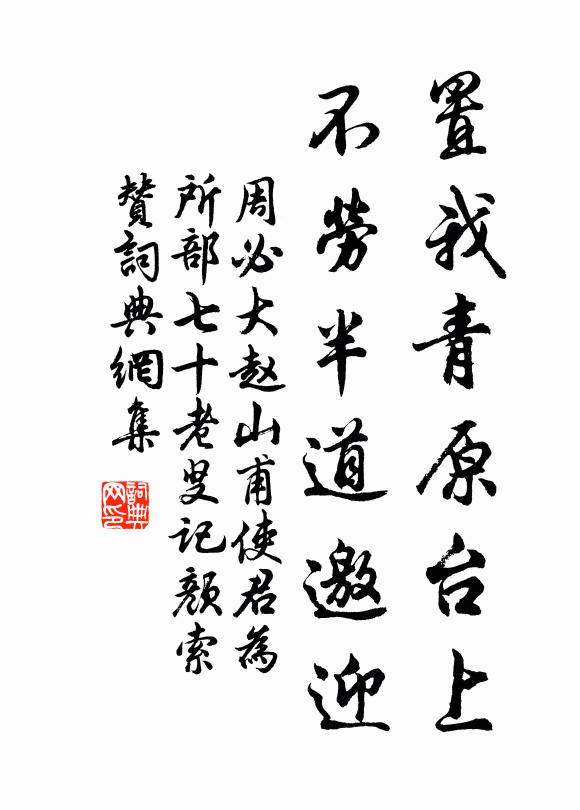 置我青原台上
不勞半道邀迎
周必大赵山甫使君為
所部七十老叟记颜索
贊詞典網集
詞典
网印